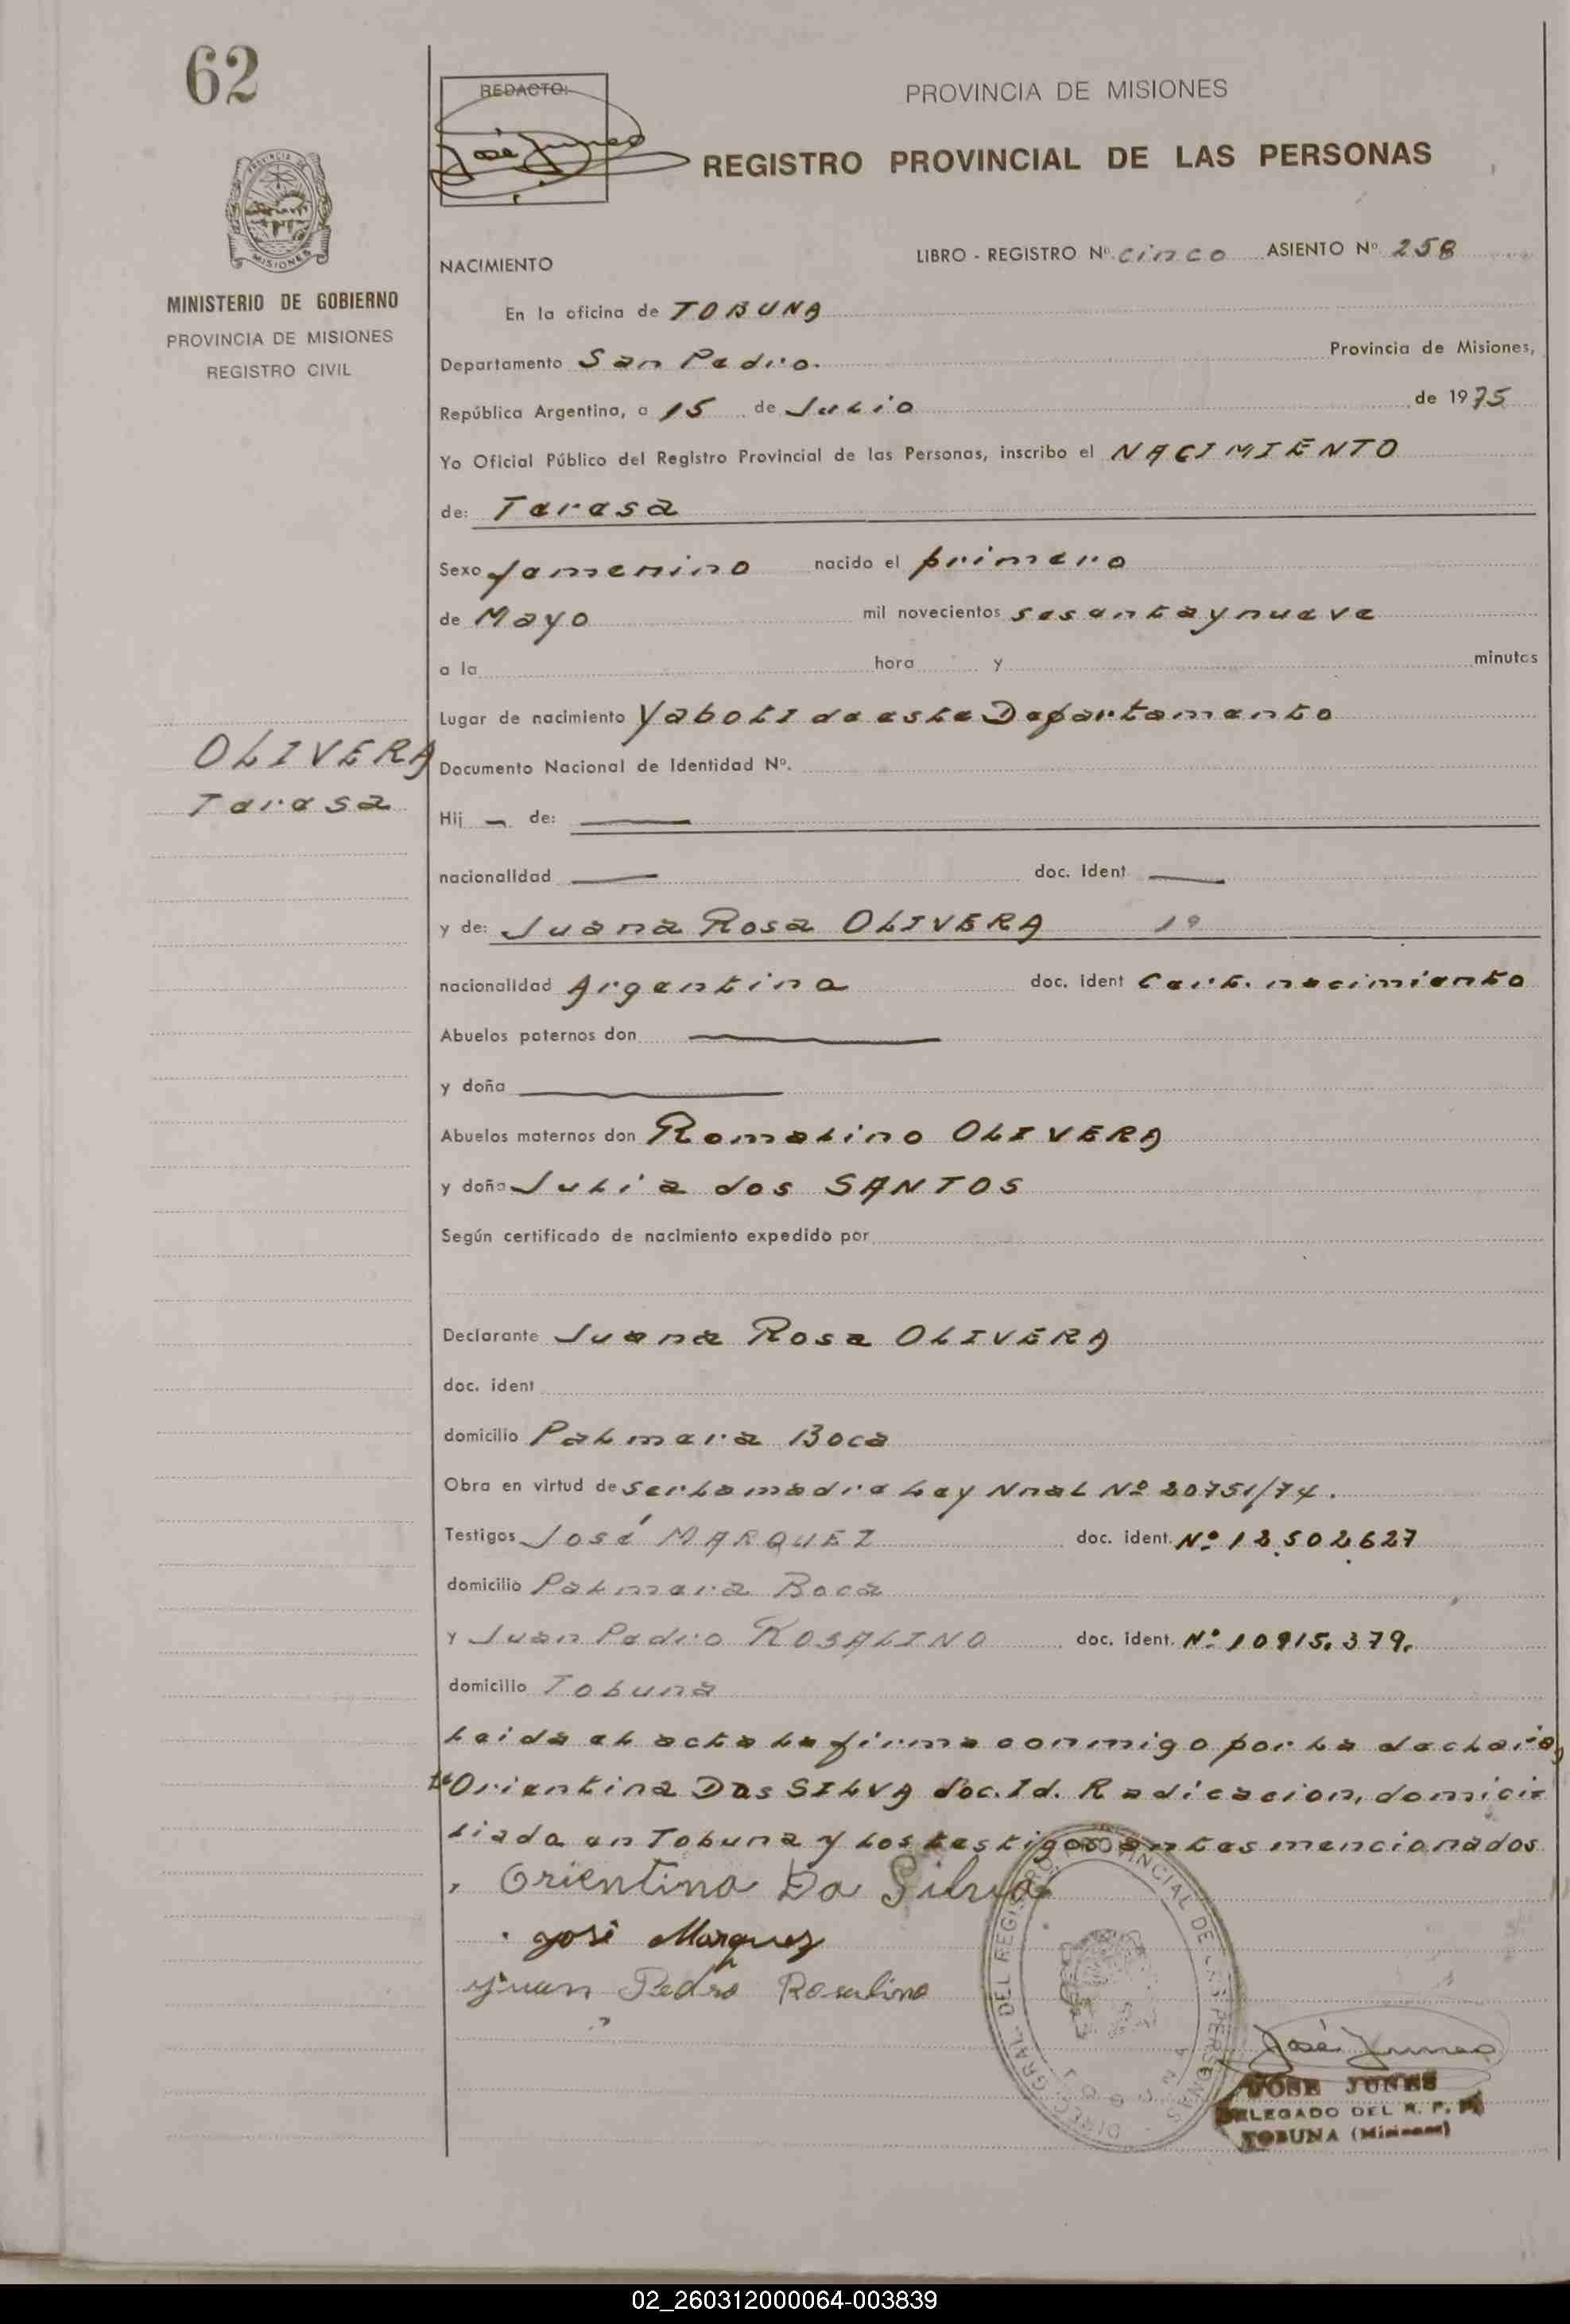 62
REDACTO:
José Junes
PROVINCIA DE MISIONES
REGISTRO PROVINCIAL DE LAS PERSONAS
PROVINCIA DE
MISIONES
MINISTERIO DE GOBIERNO
PROVINCIA DE MISIONES
REGISTRO CIVIL
NACIMIENTO LIBRO - REGISTRO Nº. cinco ASIENTO Nº 258
En la oficina de TOBUNA
Departamento San Pedro. Provincia de Misiones,
República Argentina, a 15 de Julio de 1975
Yo Oficial Público del Registro Provincial de las Personas, inscribo el NACIMIENTO
de: Teresa
Sexo femenino nacido el primero
de Mayo mil novecientos sesenta y nueve
a la hora y minutos
Lugar de nacimiento Yaboti de este Departamento
OLIVERA
Teresa
Documento Nacional de Identidad Nº.
Hij — de: —
nacionalidad — doc. Ident —
y de: Juana Rosa OLIVERA 1º
nacionalidad Argentina doc. ident Cert. nacimiento
Abuelos paternos don —
y doña —
Abuelos maternos don Romalino OLIVERA
y doña Julia dos SANTOS
Según certificado de nacimiento expedido por
Declarante Juana Rosa OLIVERA
doc. ident
domicilio Palmera Boca
Obra en virtud de ser la madre Ley Nnal Nº 20751/74.
Testigos José MARQUEZ doc. ident. Nº 12.502.627
domicilio Palmera Boca
y Juan Pedro ROSALINO doc. ident. Nº 10915.379.
domicilio Tobuna
Leida el acta la firma conmigo por la declara
te Orientina Das SILVA doc. Id. Radicacion, domici
liada en Tobuna y los testigos antes mencionados
Orientina Da Silva
José Marquez
Juan Pedro Rosalino
DIREC. GRAL. DEL REGISTRO PROVINCIAL DE LAS PERSONAS
José Junes
JOSE JUNES
DELEGADO DEL R. P. P.
TOBUNA (Misiones)
02_260312000064-003839